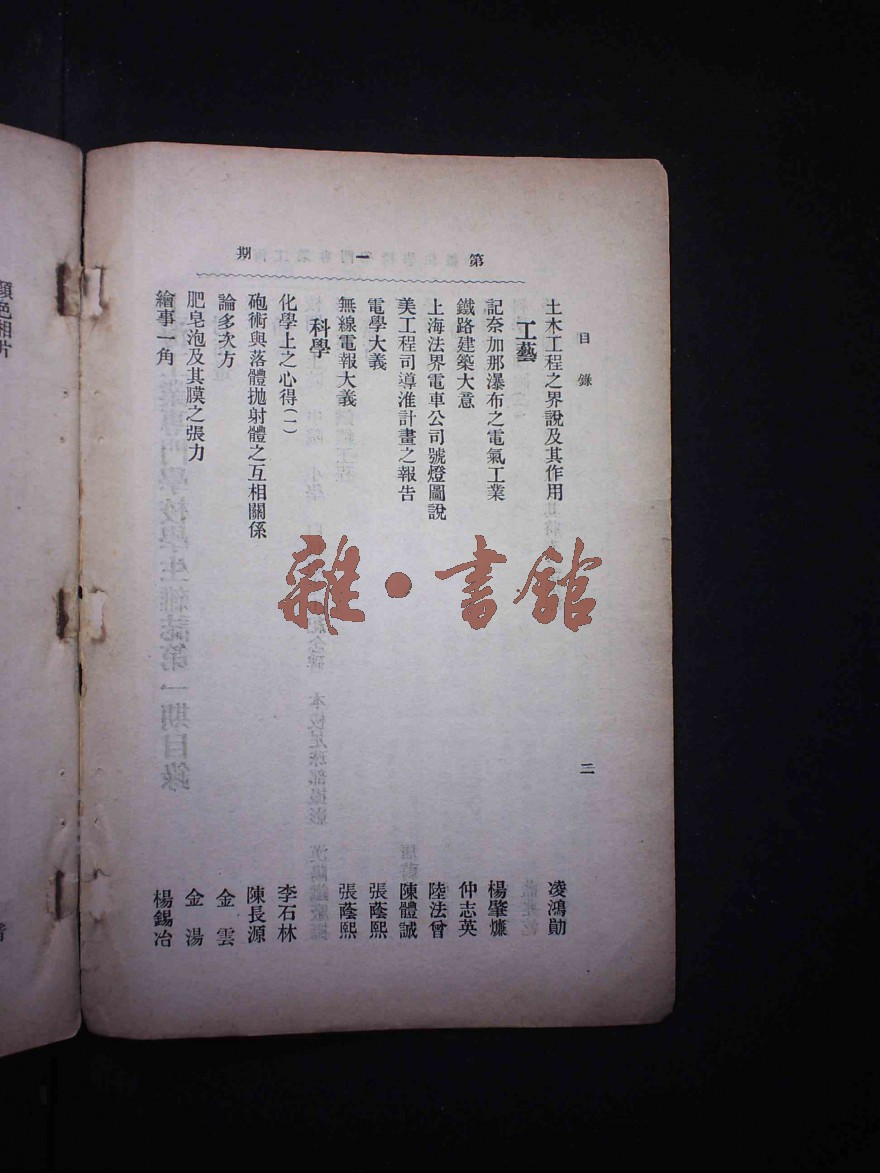 第一期
目錄
二
土木工程之界說及其作用 凌鴻勛
工藝
記奈加那瀑布之電氣工業 楊肇燫
鐵路建築大意 仲志英
上海法界電車公司號燈圖說 陸法曾
美工程司導淮計畫之報告 陳體誠
電學大義 張蔭熙
無線電報大義 張蔭熙
科學
化學上之心得(一) 李石林
砲術與落體拋射體之互相關係 陳長源
論多次方 金雲
肥皂泡及其膜之張力 金湯
繪事一角 楊錫冶
顏色相片
雜·書館